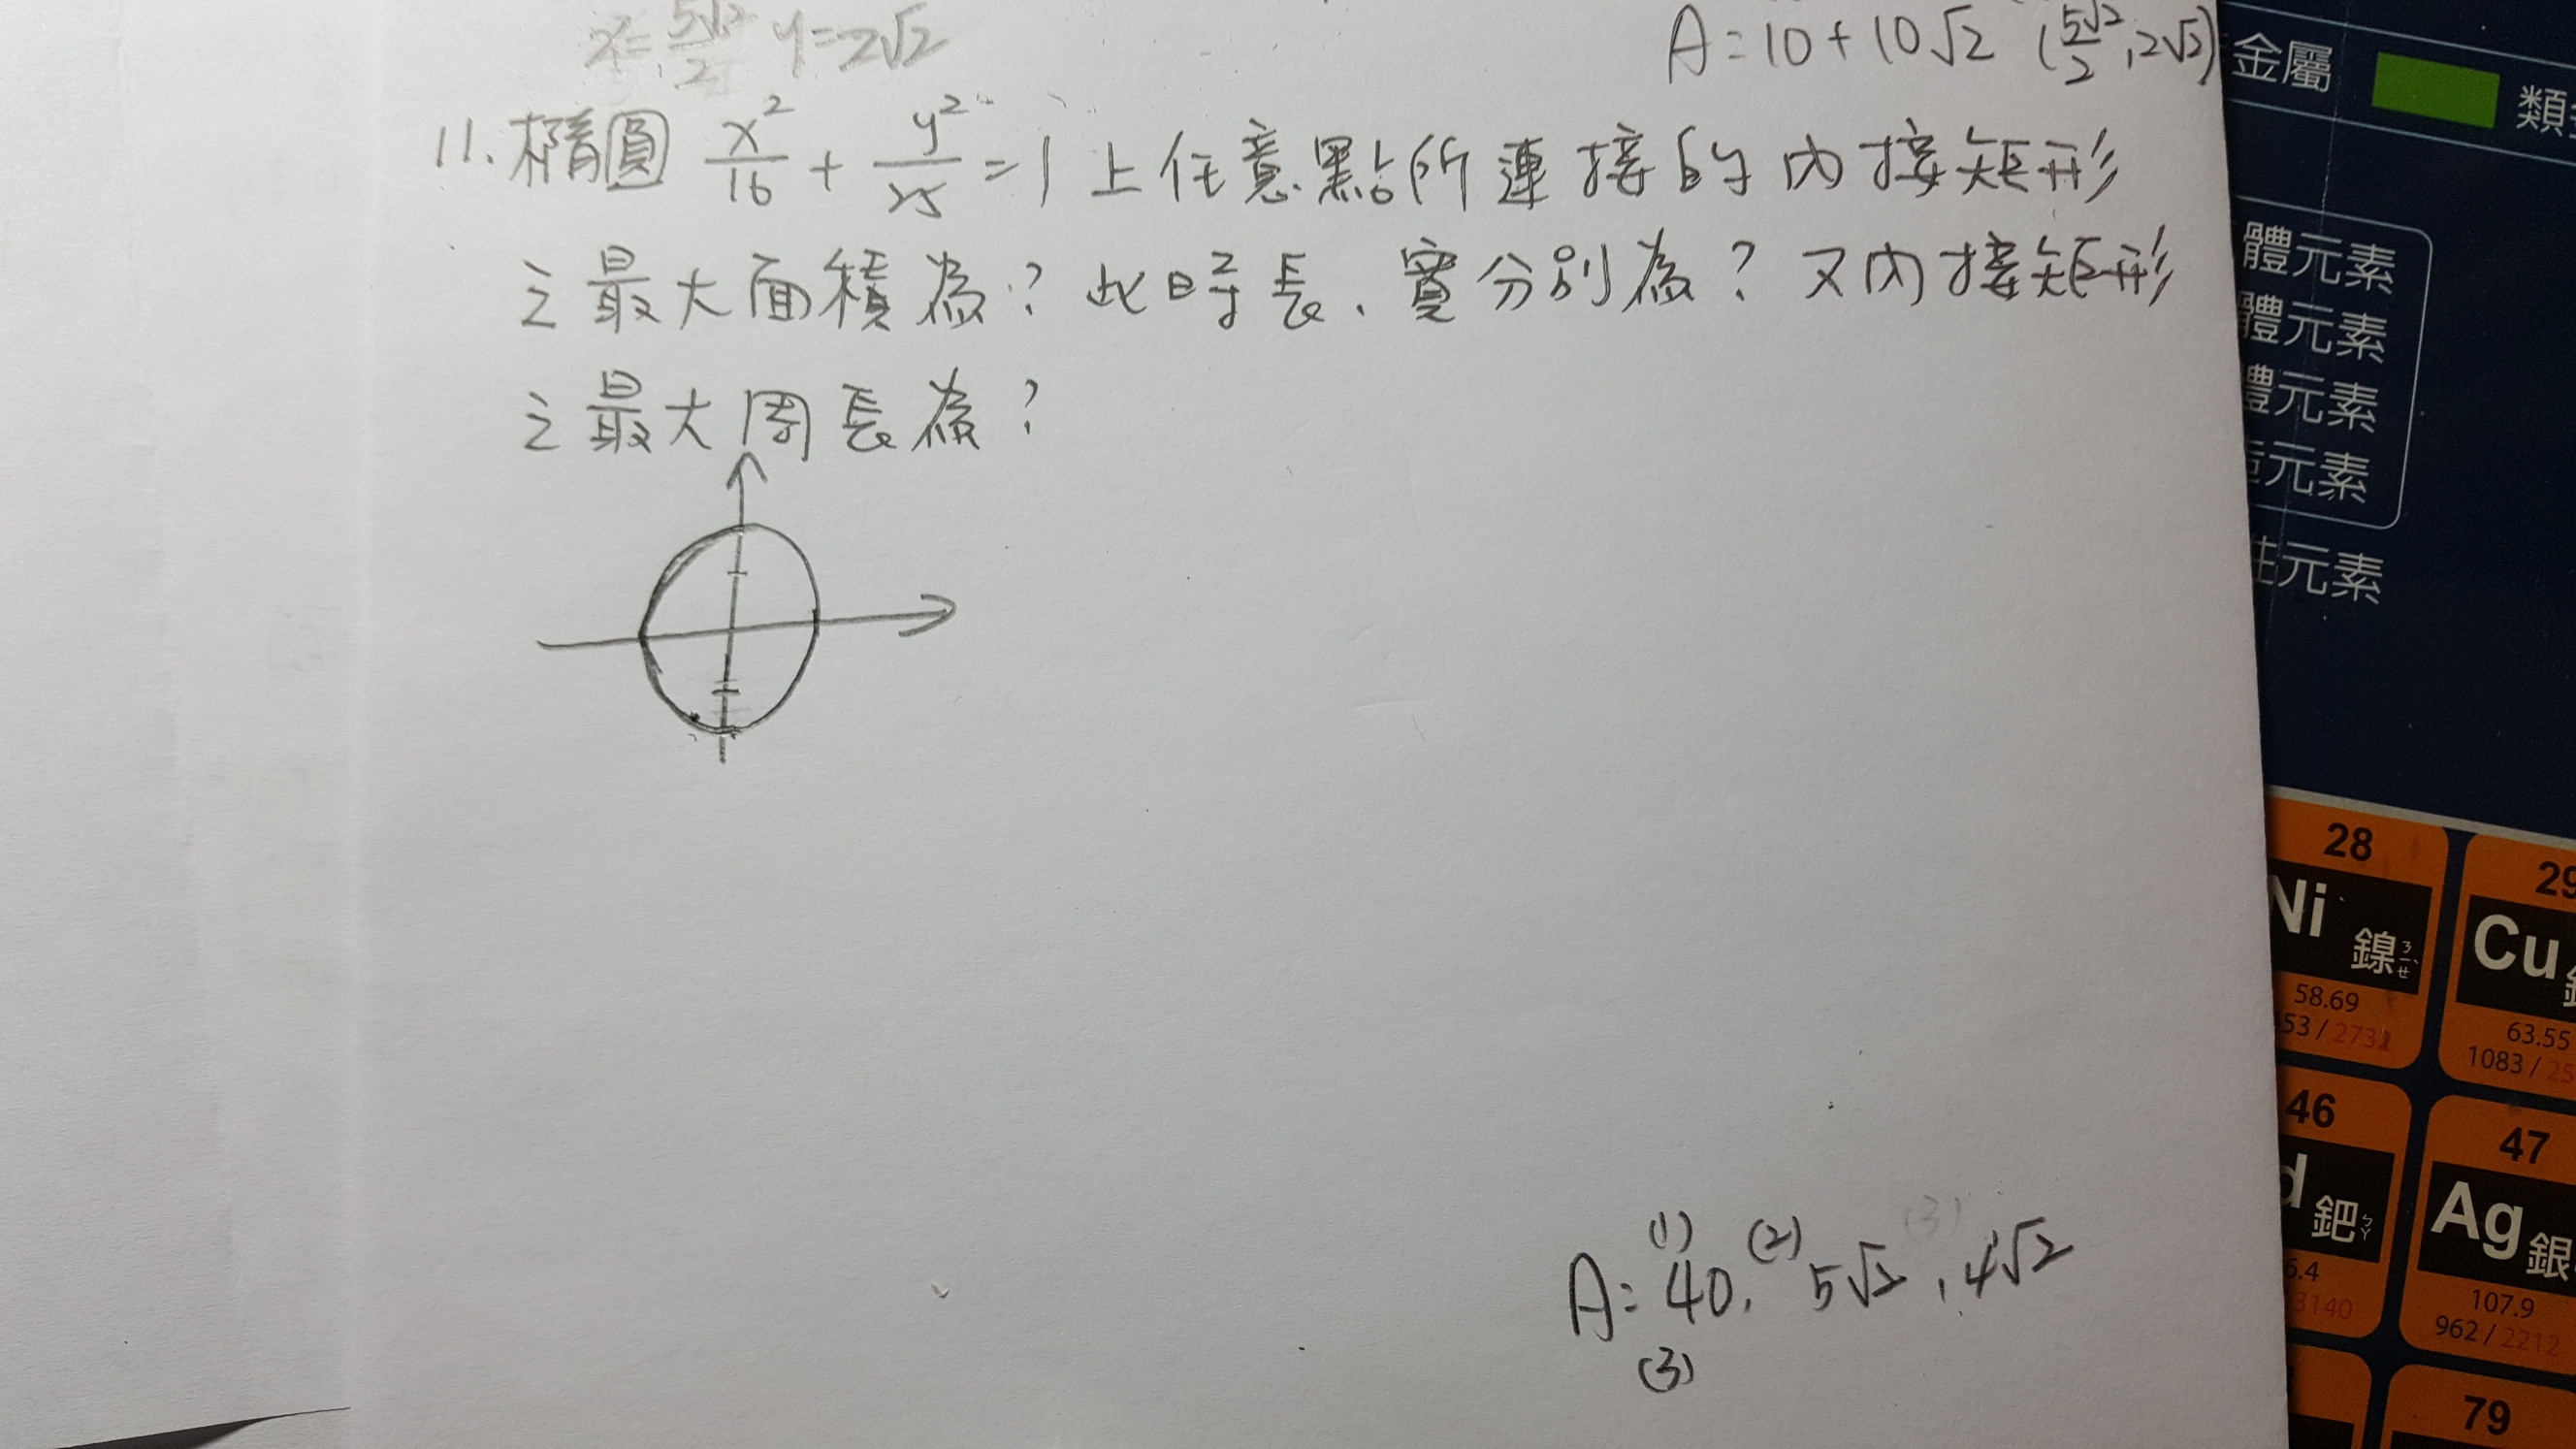 x=5√2/2 y=2√2
A=10+10√2 (5√2/2,2√2)
11.橢圓 x²/16 + y²/25 =1上任意點所連接的內接矩形
之最大面積為?此時長、寬分別為?又內接矩形
之最大周長為?
(1) (2) (3)
A: 40, 5√2, 4√2
(3)
金屬
類
體元素
體元素
體元素
元素
性元素
28
Ni 鎳 ㄋㄧㄝˋ
58.69
53 / 2732
29
Cu
63.55
1083 / 25
46
d 鈀 ㄅㄚ
6.4
3140
47
Ag 銀
107.9
962 / 2212
79